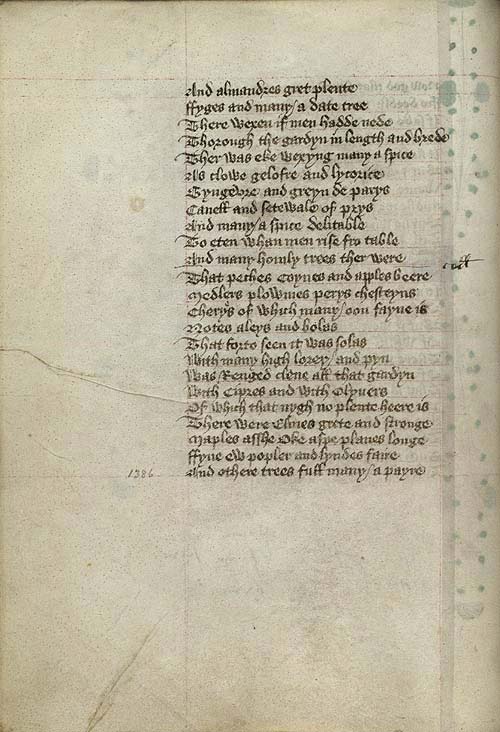 And almandres gret plente
ffyges and many / a date tree
There wexen if men hadde nede
Thorough the gardyn in length and brede
Ther was eke wexyng many a spice
As clowe gelofre and lycorice
Gyngevre and greyn de parys
Canell and setewale of prys
And many / a spice delitable
To eten whan men rise fro table
And many homly trees ther were
That peches Coynes and apples beere
Medlers plowmes perys chesteyns
Cherys of which many / oon fayne is
Notes aleys and bolas
That forto seen it was solas
With many high lorey / and pyn
Was Renged clene all that gardyn
With Cipres and with Olyuers
Of which that nygh no plente heere is
There were Elmes grete and stronge
Maples asshe Oke aspe planes longe
ffyne ew popler and lyndes faire
1386
And othere trees full many / a payre